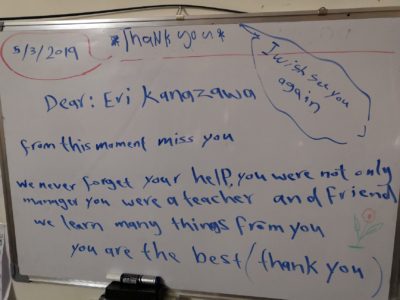 5/3/2019
*Thank you*
I wish see you
again
Dear: Eri Kanazawa
from this moment miss you
we never forget your help, you were not only
manager you were a teacher and friend
we learn many things from you
you are the best (thank you)